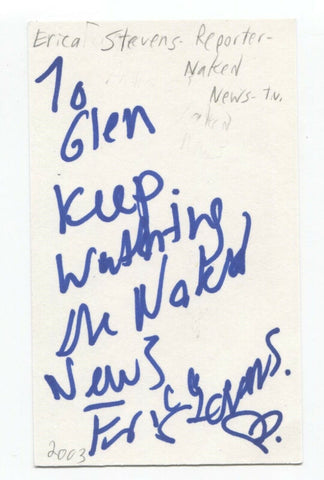 Erica Stevens- Reporter-
Naked
News- t.v.
To
Glen
Keep
Watching
the Naked
News
Erica Stevens.
2003